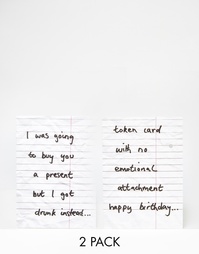 I was going
to buy you
a present
but I got
drunk instead...
token card
with no
emotional
attachment
happy birthday...
2 PACK